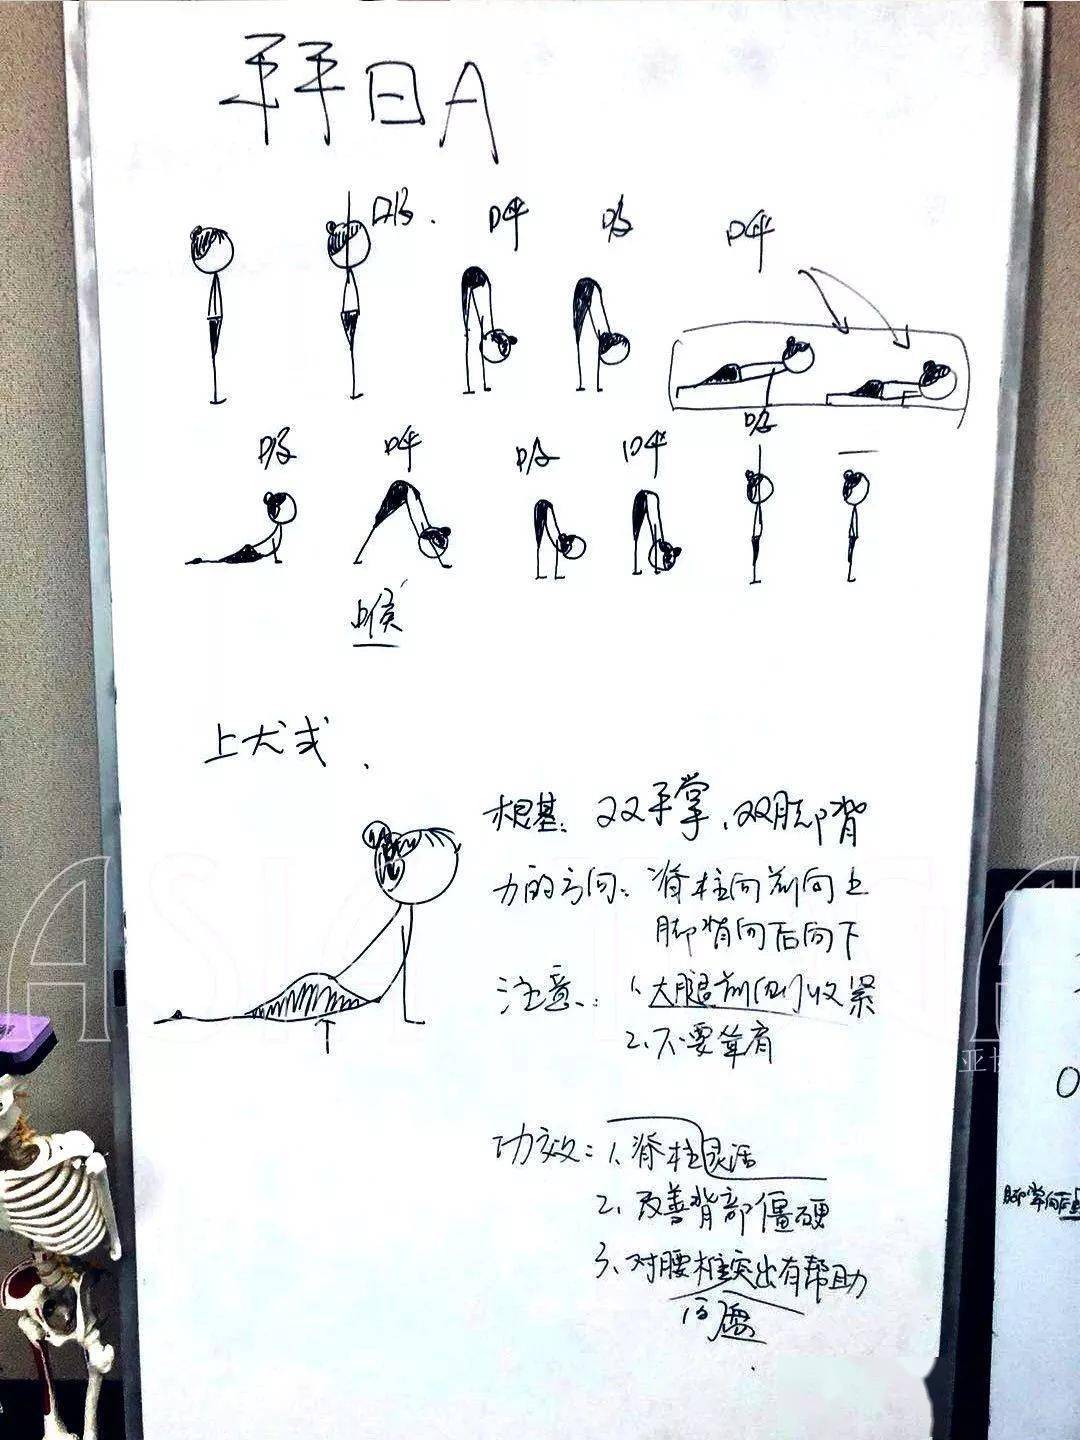 拜日A
吸 呼 吸 呼
吸 呼 吸 呼 吸
上犬式
根基：双手掌、双脚背
力的方向：脊柱向前向上
脚背向后向下
注意：1、大腿前侧收紧
2、不要耸肩
功效：1、脊柱灵活
2、改善背部僵硬
3、对腰椎突出有帮助